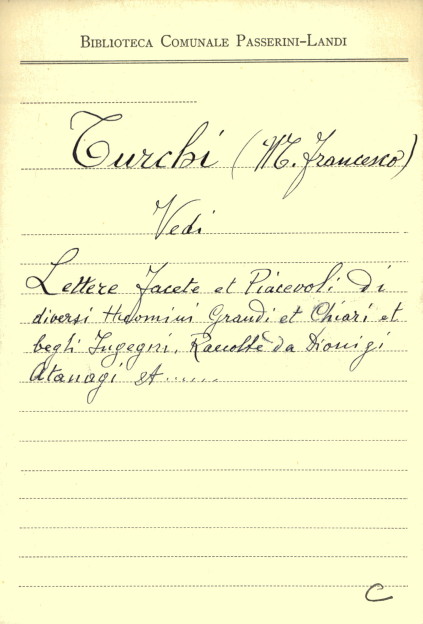 BIBLIOTECA COMUNALE PASSERINI-LANDI
Turchi (M. Francesco)
Vedi
Lettere Facete et Piacevoli di
diversi Huomini Grandi et Chiari et
begli Ingegni, Raccolte da Dionigi
Atanagi et......
C